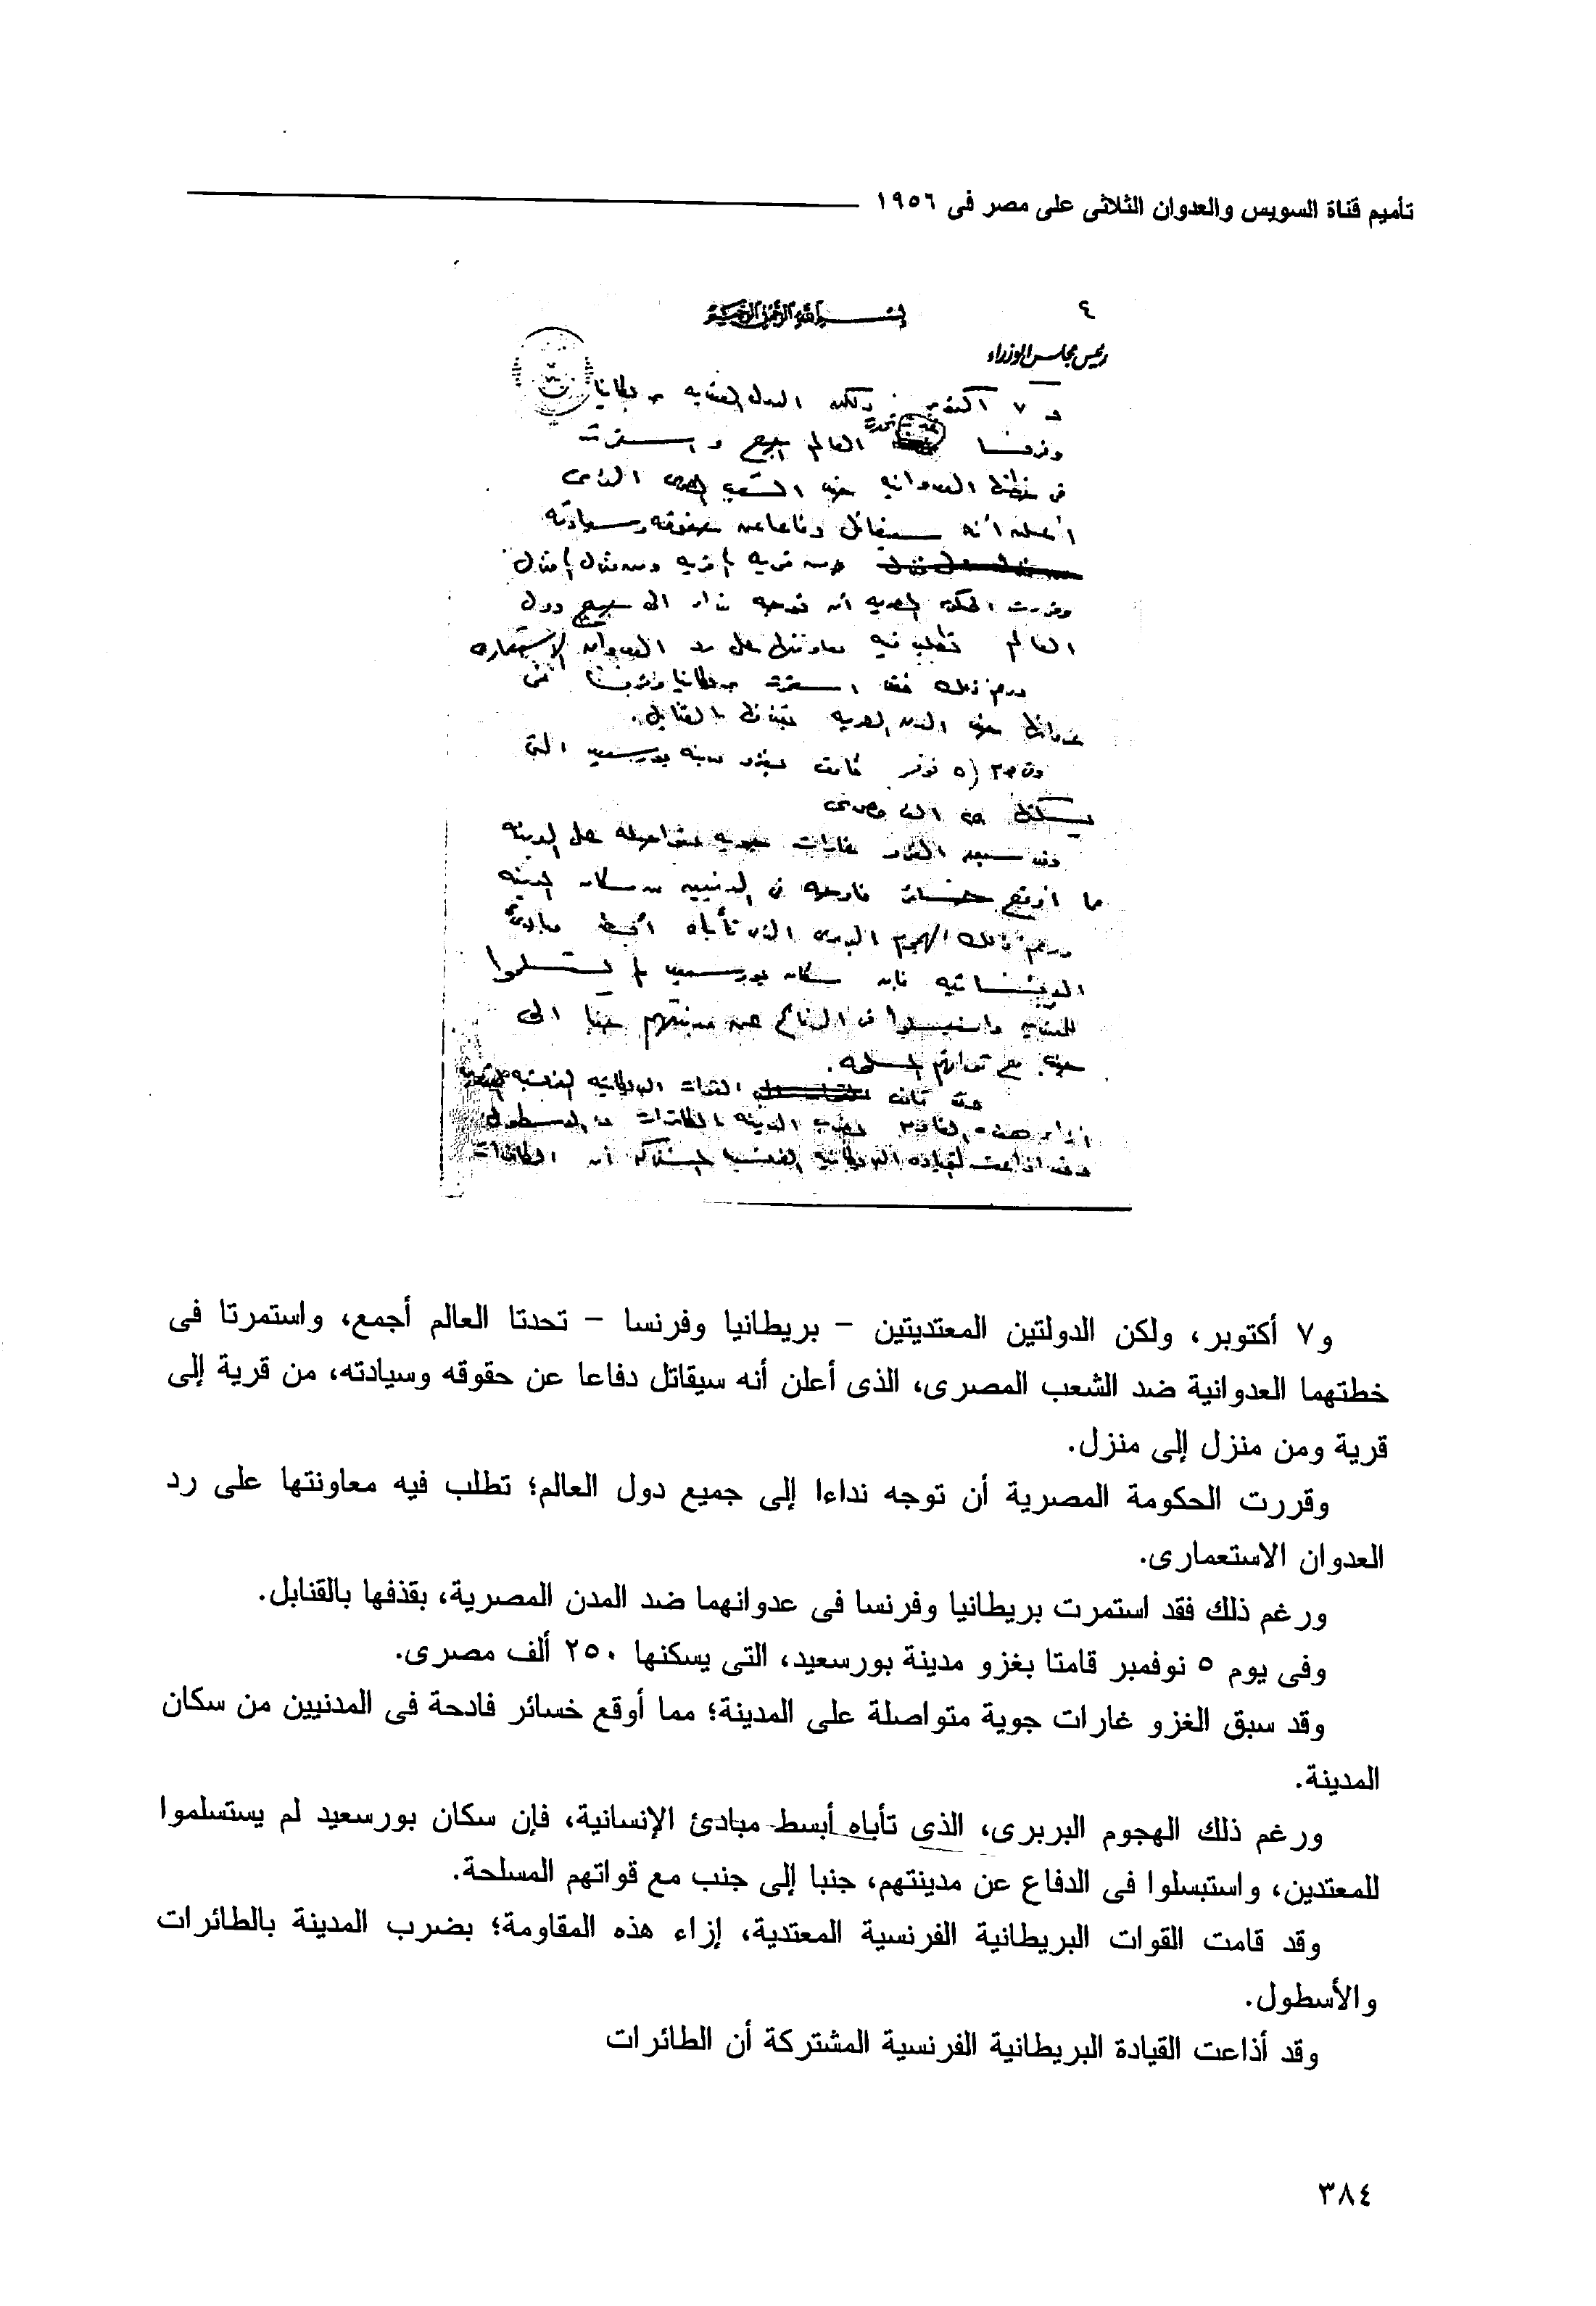 تأميم قناة السويس والعدوان الثلاثى على مصر فى ١٩٥٦
٤
بسم الله الرحمن الرحيم
رئيس مجلس الوزراء
و ٧ أكتوبر ولكن الدول المعتديه بريطانيا
وفرنسا تحدت العالم اجمع و استمرت
فى خطتها العدوانيه ضد الشعب المصرى الذى
أعلن أنه سيقاتل دفاعا عن حقوقه وسيادته
من قريه إلى قريه ومن منزل إلى منزل
وقررت الحكومه المصريه ان توجه نداء الى جميع دول
العالم تطلب فيه معاونتها على رد العدوان الاستعمارى
ورغم ذلك فقد استمرت بريطانيا وفرنسا فى
عدوانها ضد المدن المصريه بقذفها بالقنابل.
وفى يوم ٥ نوفمبر قامت بغزو مدينه بورسعيد التى
يسكنها الف مصرى
وقد سبق الغزو غارات جويه متواصله على المدينه
مما اوقع خسائر فادحه فى المدنيين من سكان المدينه
ورغم ذلك الهجوم البربرى الذى تأباه أبسط مبادئ
الانسانيه فان سكان بورسعيد لم يستسلموا
للمعتدين واستبسلوا فى الدفاع عن مدينتهم جنبا الى
جنب مع قواتهم المسلحه.
وقد قامت القوات البريطانيه الفرنسيه المعتديه
ازاء هذه المقاومه بضرب المدينه بالطائرات والاسطول
وقد اذاعت القياده البريطانيه الفرنسيه المشتركه ان الطائرات
و٧ أكتوبر، ولكن الدولتين المعتديتين – بريطانيا وفرنسا – تحدتا العالم أجمع، واستمرتا فى
خطتهما العدوانية ضد الشعب المصرى، الذى أعلن أنه سيقاتل دفاعا عن حقوقه وسيادته، من قرية إلى
قرية ومن منزل إلى منزل.
وقررت الحكومة المصرية أن توجه نداءا إلى جميع دول العالم؛ تطلب فيه معاونتها على رد
العدوان الاستعمارى.
ورغم ذلك فقد استمرت بريطانيا وفرنسا فى عدوانهما ضد المدن المصرية، بقذفها بالقنابل.
وفى يوم ٥ نوفمبر قامتا بغزو مدينة بورسعيد، التى يسكنها ٢٥٠ ألف مصرى.
وقد سبق الغزو غارات جوية متواصلة على المدينة؛ مما أوقع خسائر فادحة فى المدنيين من سكان
المدينة.
ورغم ذلك الهجوم البربرى، الذى تأباه أبسط مبادئ الإنسانية، فإن سكان بورسعيد لم يستسلموا
للمعتدين، واستبسلوا فى الدفاع عن مدينتهم، جنبا إلى جنب مع قواتهم المسلحة.
وقد قامت القوات البريطانية الفرنسية المعتدية، إزاء هذه المقاومة؛ بضرب المدينة بالطائرات
والأسطول.
وقد أذاعت القيادة البريطانية الفرنسية المشتركة أن الطائرات
٣٨٤